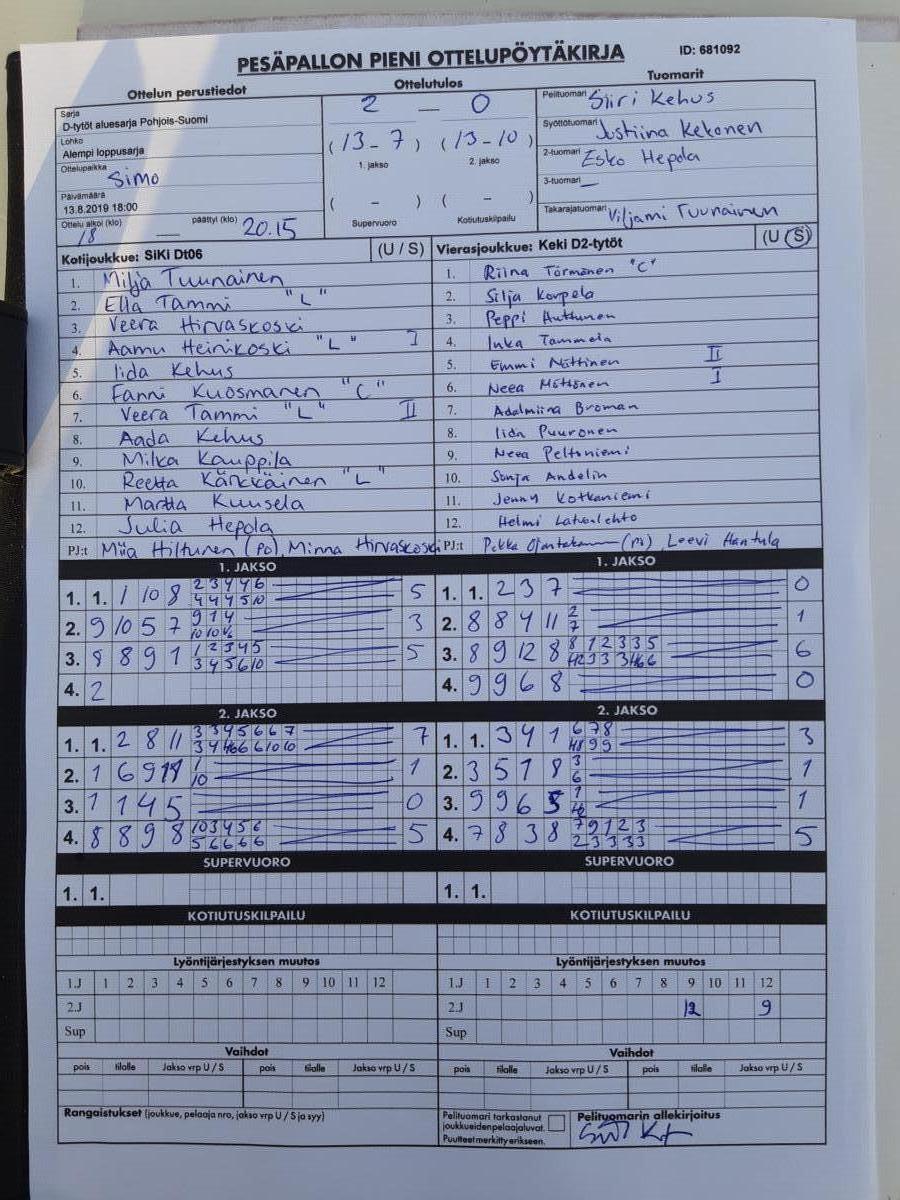 PESÄPALLON PIENI OTTELUPÖYTÄKIRJA
ID: 681092
Ottelun perustiedot
Sarja
D-tytöt aluesarja Pohjois-Suomi
Lohko
Alempi loppusarja
Ottelupaikka Simo
Päivämäärä
13.8.2019 18:00
Ottelu alkoi (klo) 18 päättyi (klo) 20.15
Ottelutulos
2 — 0
(13-7) (13-10)
1. jakso 2. jakso
( - ) ( - )
Supervuoro Kotiutuskilpailu
Tuomarit
Pelituomari Siiri Kehus
Syöttötuomari Justiina Kekonen
2-tuomari Esko Hepola
3-tuomari —
Takarajatuomari Viljami Tuunainen
Kotijoukkue: SiKi Dt06 (U / S)
1. Milja Tuunainen
2. Ella Tammi "L"
3. Veera Hirvaskoski
4. Aamu Heinikoski "L" I
5. Iida Kehus
6. Fanni Kuosmanen "C"
7. Veera Tammi "L" II
8. Aada Kehus
9. Milka Kauppila
10. Reetta Kärkkäinen "L"
11. Martta Kuusela
12. Julia Hepola
PJ:t Miia Hiltunen (PJ), Minna Hirvaskoski
Vierasjoukkue: Keki D2-tytöt (U / S)
1. Riina Törmänen "C"
2. Silja Korpela
3. Peppi Huttunen
4. Inka Tammela
5. Emmi Möttönen II
6. Neea Möttönen I
7. Adalmiina Broman
8. Iida Puuronen
9. Neea Peltoniemi
10. Sonja Andelin
11. Jenny Kotkaniemi
12. Helmi Latvalehto
PJ:t Pekka (PJ), Leevi Hantula
1. JAKSO
1. 1. 1 10 8 2 3 4 4 6 5
4 4 4 5 10
2. 9 10 5 7 9 1 4 3
3. 8 8 9 1 1 2 3 4 5 5
3 4 5 6 10
4. 2
1. JAKSO
1. 1. 2 3 7 0
2. 8 8 4 11 2 1
7
3. 8 9 12 8 8 1 2 3 3 5 6
4. 9 9 6 8 0
2. JAKSO
1. 1. 2 8 11 3 3 4 5 6 6 7 7
2. 1 6 9 11 1 1
10
3. 1 1 4 5 0
4. 8 8 9 8 10 3 4 5 6 5
5 6 6 6 6
2. JAKSO
1. 1. 3 4 1 6 7 8 3
2. 3 5 7 8 3 1
6
3. 9 9 6 5 1 1
4. 7 8 3 8 7 9 1 2 3 5
2 3 3 3 3
SUPERVUORO
1. 1.
SUPERVUORO
1. 1.
KOTIUTUSKILPAILU
KOTIUTUSKILPAILU
Lyöntijärjestyksen muutos
1.J 1 2 3 4 5 6 7 8 9 10 11 12
2.J
Sup
Lyöntijärjestyksen muutos
1.J 1 2 3 4 5 6 7 8 9 10 11 12
2.J 12 9
Sup
Vaihdot
pois tilalle Jakso vrp U / S pois tilalle Jakso vrp U / S
Vaihdot
pois tilalle Jakso vrp U / S pois tilalle Jakso vrp U / S
Rangaistukset (joukkue, pelaaja nro, jakso vrp U / S ja syy)
Pelituomari tarkastanut
joukkueidenpelaajaluvat.
Puutteet merkitty erikseen.
Pelituomarin allekirjoitus